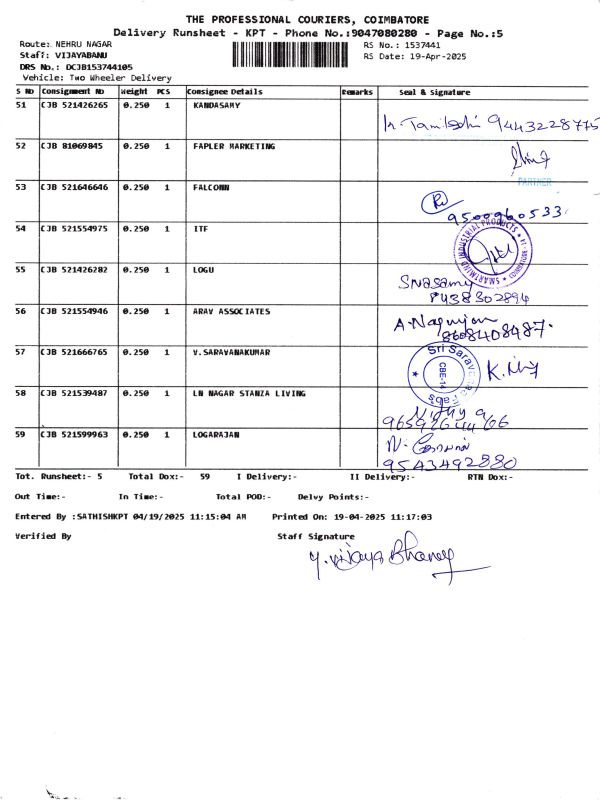 THE PROFESSIONAL COURIERS, COIMBATORE
Delivery Runsheet - KPT - Phone No.:9047080280 - Page No.:5
Route: NEHRU NAGAR RS No.: 1537441
Staff: VIJAYABANU RS Date: 19-Apr-2025
DRS No.: DCJB153744105
Vehicle: Two Wheeler Delivery
S No Consignment No Weight PCS Consignee Details Remarks Seal & signature
51 CJB 521426265 0.250 1 KANDASAMY
9443228775
52 CJB 81069845 0.250 1 FAPLER MARKETING
PARTNER
53 CJB 521646646 0.250 1 FALCONN
9500960533
54 CJB 521554975 0.250 1 ITF
SMARTMIND INDUSTRIAL PRODUCTS
55 CJB 521426282 0.250 1 LOGU
8438302894
56 CJB 521554946 0.250 1 ARAV ASSOCIATES
8608408487.
57 CJB 521666765 0.250 1 V.SARAVANAKUMAR
CBE-14
58 CJB 521539487 0.250 1 LN NAGAR STANZA LIVING
59 CJB 521599963 0.250 1 LOGARAJAN
9543492880
Tot. Runsheet:- 5 Total Dox:- 59 I Delivery:- II Delivery:- RTN Dox:-
Out Time:- In Time:- Total POD:- Delvy Points:-
Entered By :SATHISHKPT 04/19/2025 11:15:04 AM Printed On: 19-04-2025 11:17:03
Verified By Staff Signature
Y.Vijaya Bhanu